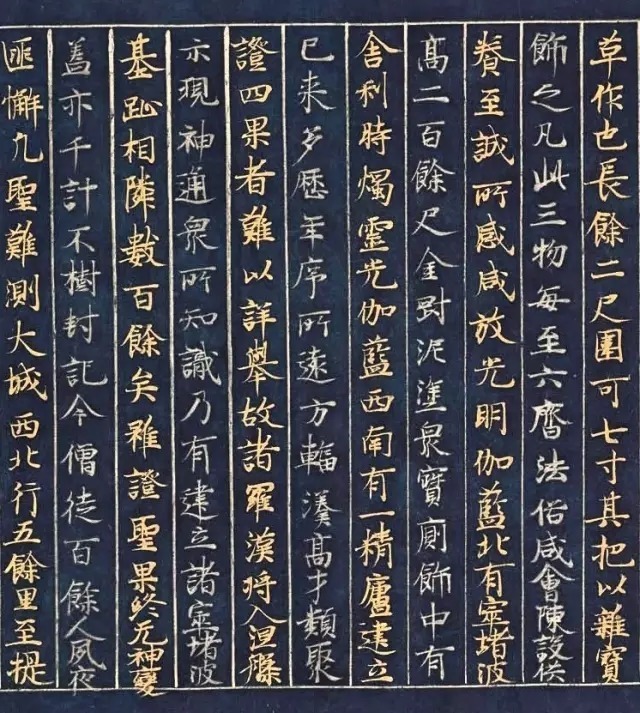 草作也長餘二尺圍可七寸其把以雜寶
飾之凡此三物每至六齋法俗咸會陳設供
養至誠所感咸放光明伽藍北有窣堵波
高二百餘尺金剛泥塗衆寶廁飾中有
舍利時燭靈光伽藍西南有一精廬建立
已来多歷年序所遠方輻湊高才類聚
證四果者難以詳舉故諸羅漢將入涅槃
示現神通衆所知識乃有建立諸窣堵波
基趾相隣數百餘矣雖證聖果終无神變
蓋亦千計不樹封記今僧徒百餘人夙夜
匪懈凡聖難測大城西北行五餘里至提